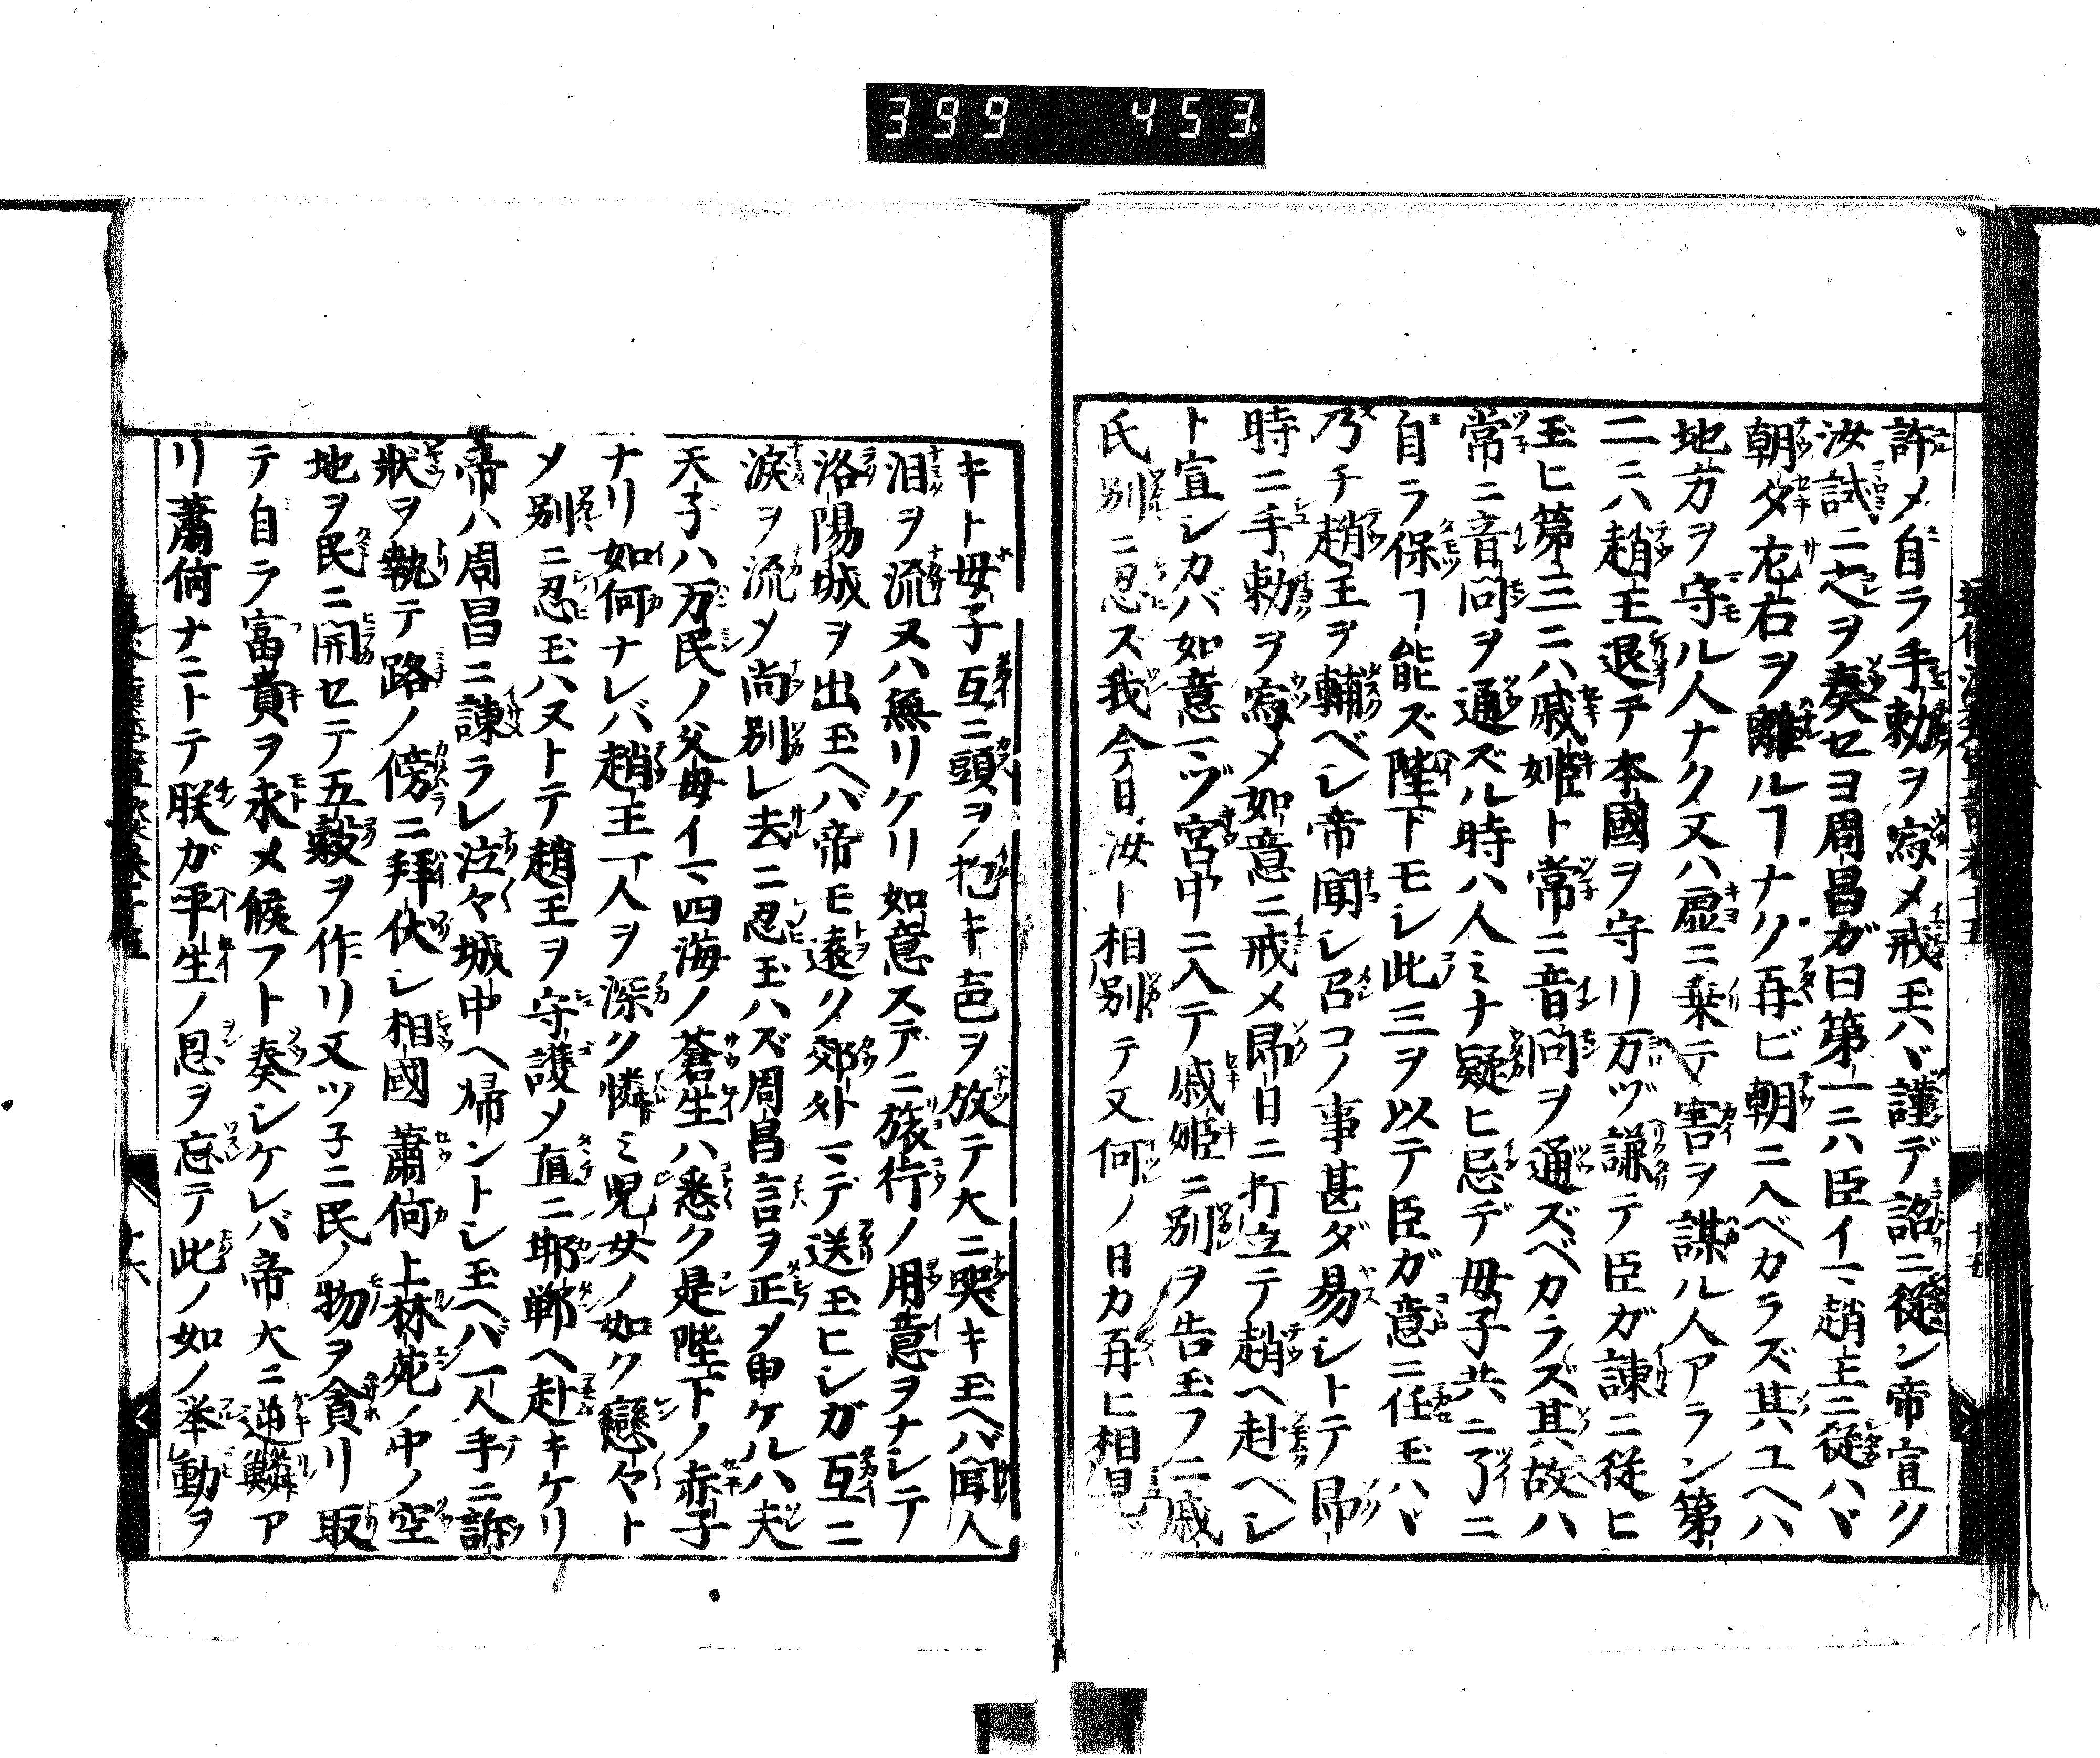 399 453
許メ自ラ手勅ヲ寂メ戒玉ハヾ謹デ詔ニ従ン帝宣ク
汝試ニ之ヲ奏セヨ周昌ガ曰第一ニハ臣イマ趙王ニ従ハヾ
朝夕左右ヲ離ルヿナリ再ビ朝ニ入ベカラズ其ユヘハ
地方ヲ守ル人ナク又ハ虚ニ乗テ害ヲ謀ル人アラン第
二ニハ趙王退テ本國ヲ守リ万ヅ謙テ臣ガ諫ニ従ヒ
玉ヒ第三ニハ戚姫ト常ニ音問ヲ通ズベカラズ其故ハ
常ニ音問ヲ通ズル時ハ人ミナ疑ヒ忌デ母子共ニ了ニ
自ラ保ヿ能ズ陛下モシ此三ヲ以テ臣ガ意ニ任玉ハヾ
乃チ趙王ヲ輔ベシ帝聞シ召コノ事甚ダ易シトテ即
時ニ手勅ヲ寂メ如意ニ戒メ即日ニ打立テ趙ヘ赴ヘシ
ト宣シカバ如意マヅ宮中ニ入テ戚姫ニ別ヲ告玉フニ戚
氏別ニ忍ズ我今日汝ト相別テ又何ノ日カ再ヒ相見ベ
キト母子互ニ頭ヲ抱キ声ヲ放テ大ニ哭キ玉ヘバ聞人
泪ヲ流ヌハ無リケリ如意スデニ旅行ノ用意ヲナシテ
洛陽城ヲ出玉ヘバ帝モ遠ク郊外マデ送玉ヒシガ互ニ
涙ヲ流メ尚別レ去ニ忍玉ハズ周昌言ヲ正メ申ケルハ夫
天子ハ万民ノ父母イマ四海ノ蒼生ハ悉ク是陛下ノ赤子
ナリ如何ナレバ趙王一人ヲ深ク憐ミ児女ノ如ク戀々ト
メ別ニ忍玉ハヌトテ趙王ヲ守護メ直ニ邯鄲ヘ赴キケリ
帝ハ周昌ニ諫ラレ泣々城中ヘ帰ントシ玉ヘバ一人手ニ訴
狀ヲ執テ路ノ傍ニ拜伏シ相國蕭何上林苑ノ中ノ空
地ヲ民ニ開セテ五穀ヲ作リ又ツ子ニ民ノ物ヲ貪リ取
テ自ラ富貴ヲ求メ候フト奏シケレバ帝大ニ逆鱗ア
リ蕭何ナニトテ朕ガ平生ノ恩ヲ忘テ此ノ如ノ挙動ヲ